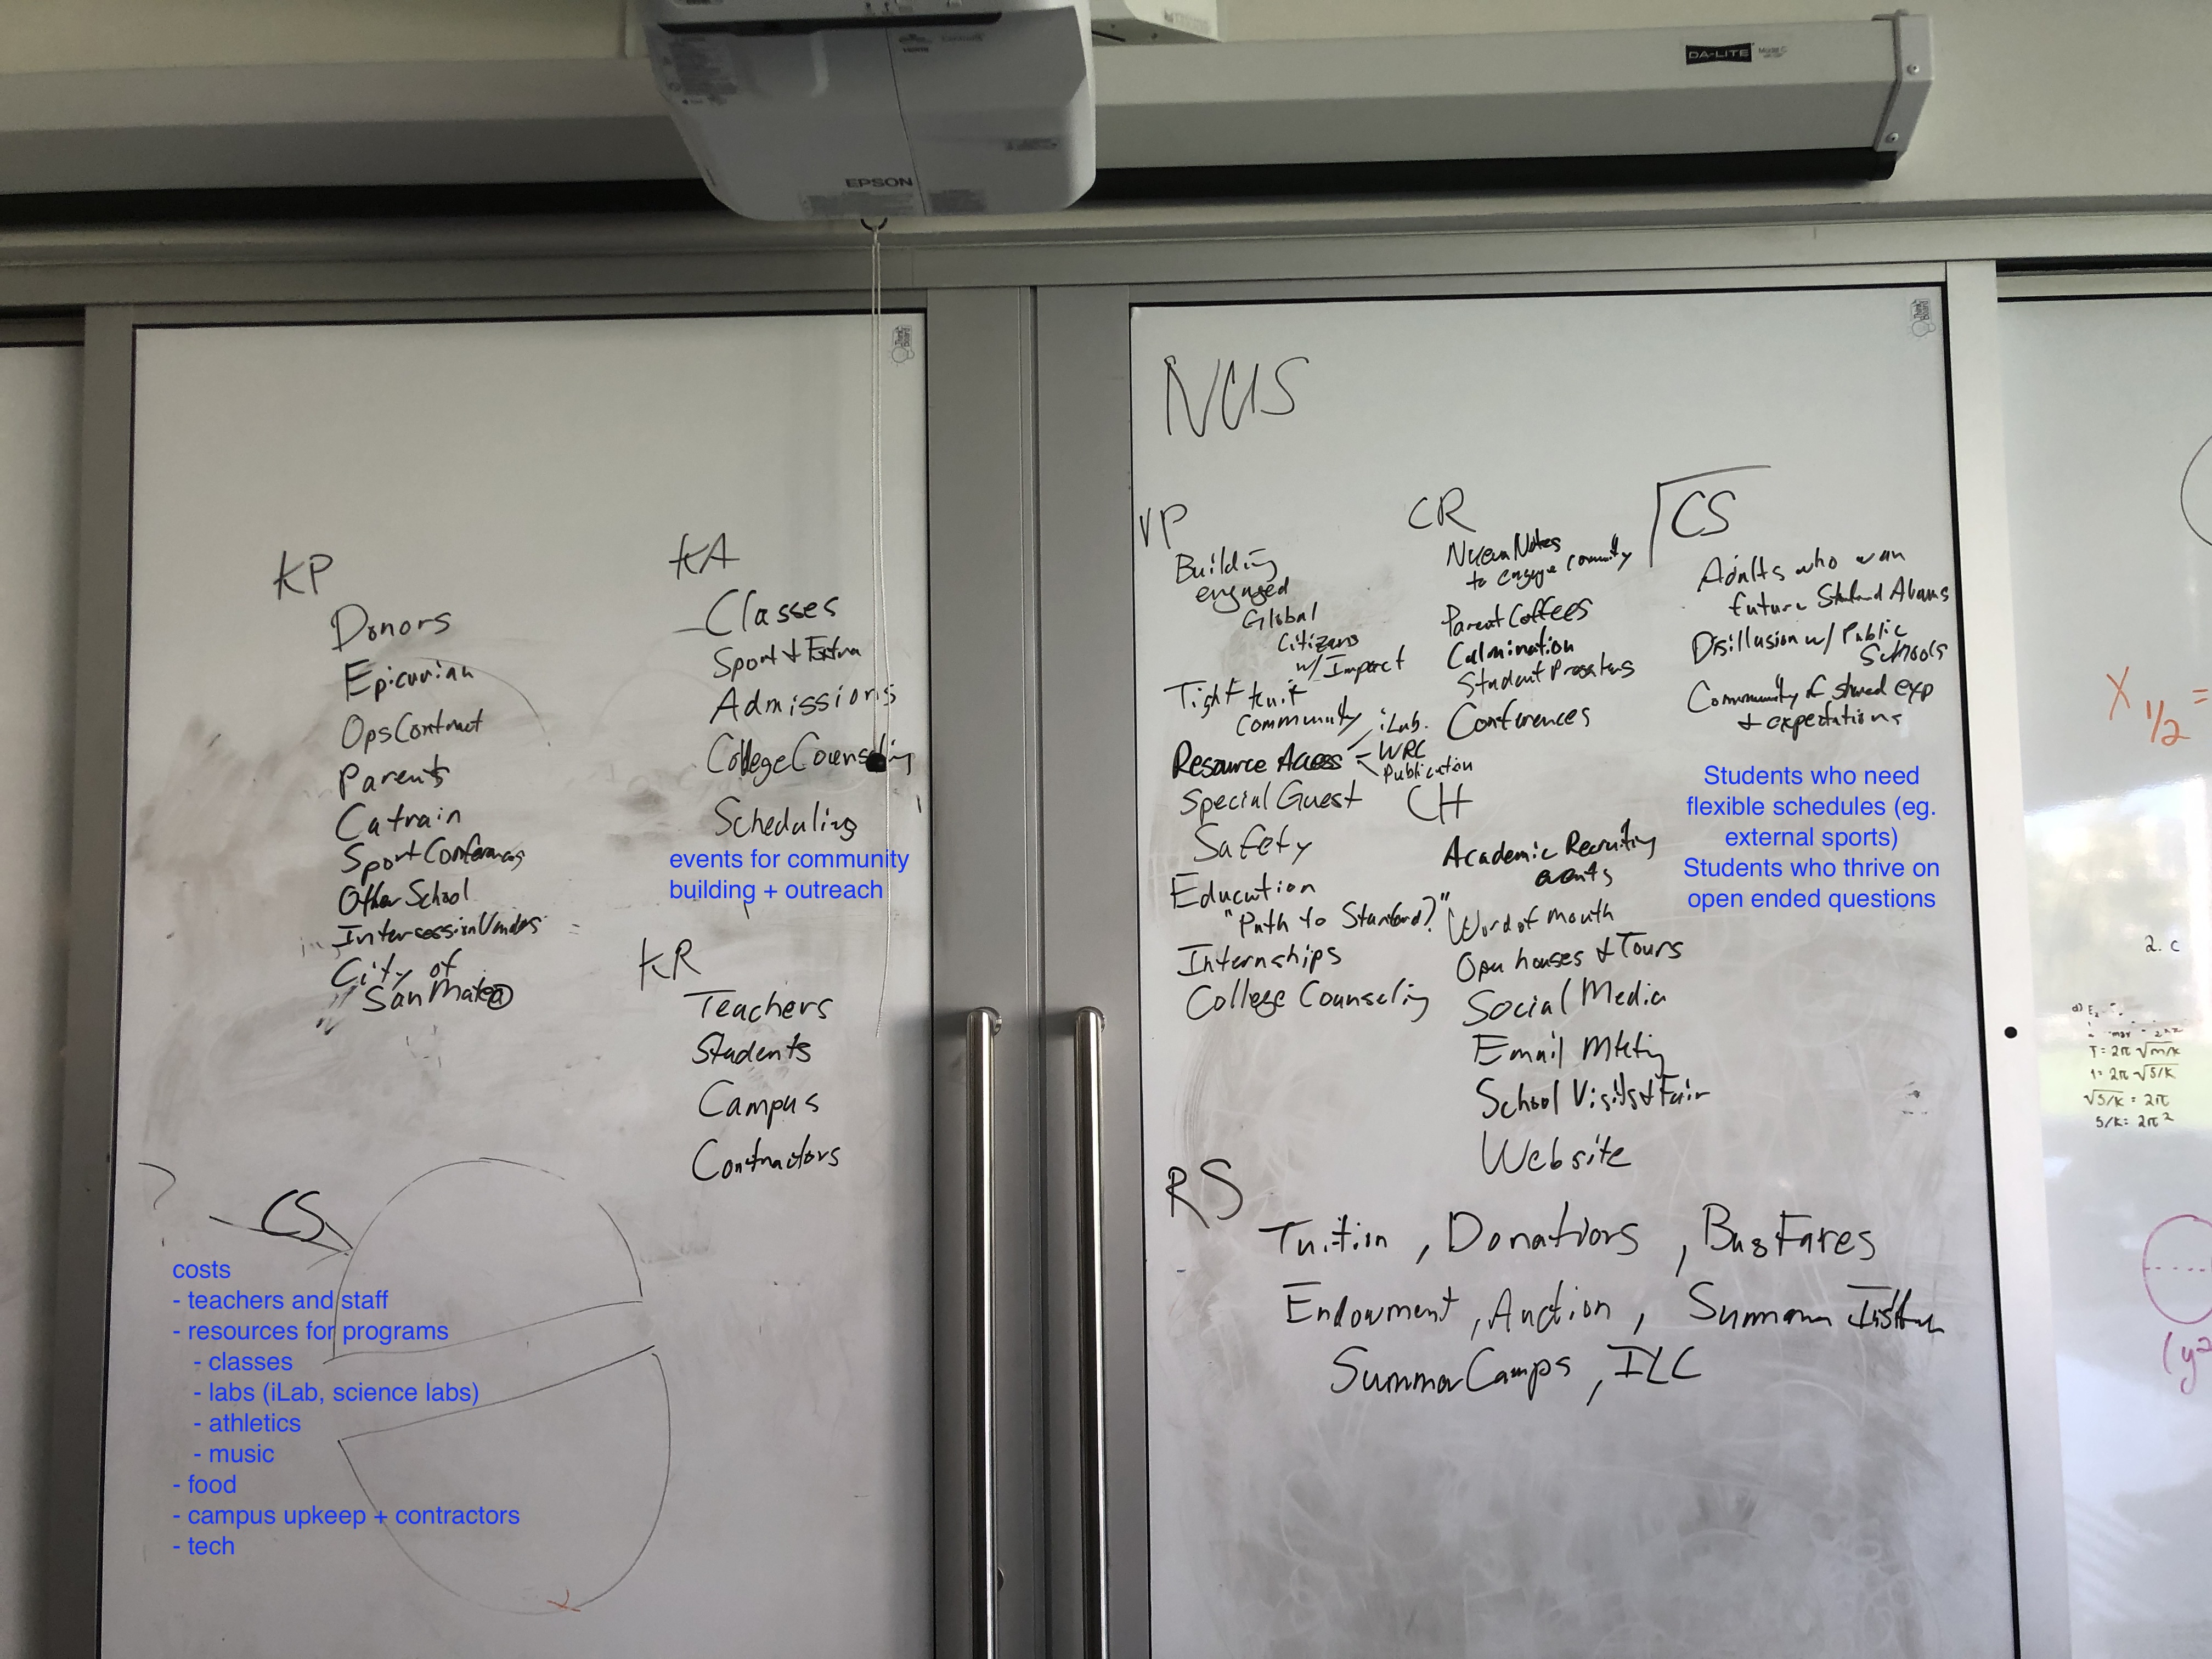 EPSON
DA-LITE
Model C
KP
Donors
Epicurian
Ops Contract
Parents
Catrain
Sport Conferences
Other School
Intersession Vendors
City of
San Mateo
KA
Classes
Sport + Extra
Admissions
College Counseling
Scheduling
events for community
building + outreach
KR
Teachers
Students
Campus
Contractors
?
CS
costs
- teachers and staff
- resources for programs
- classes
- labs (iLab, science labs)
- athletics
- music
- food
- campus upkeep + contractors
- tech
NUS
VP
Building
engaged
Global
Citizens
w/ Impact
Tight knit
Community
Resource Access
iLab
WRC
Publication
Special Guest
Safety
Education
"Path to Stanford?"
Internships
College Counseling
CR
Nueva Notes
to engage community
Parent Coffees
Culmination
Student
Conferences
CH
Academic Recruiting
events
Word of mouth
Open houses + Tours
Social Media
Email Mktg
School Visits + Fair
Website
CS
Adults who wan
future Alums
Disillusion w/ Public
Schools
Community of shared exp
+ expectations
Students who need
flexible schedules (eg.
external sports)
Students who thrive on
open ended questions
RS
Tuition, Donations, Bus Fares
Endowment, Auction, Summer
Summer Camps, ILC
X 1/2 =
2. c
T = 2π √m/k
1 = 2π √5/k
√5/k = 2π
5/k = 2π²
(y²